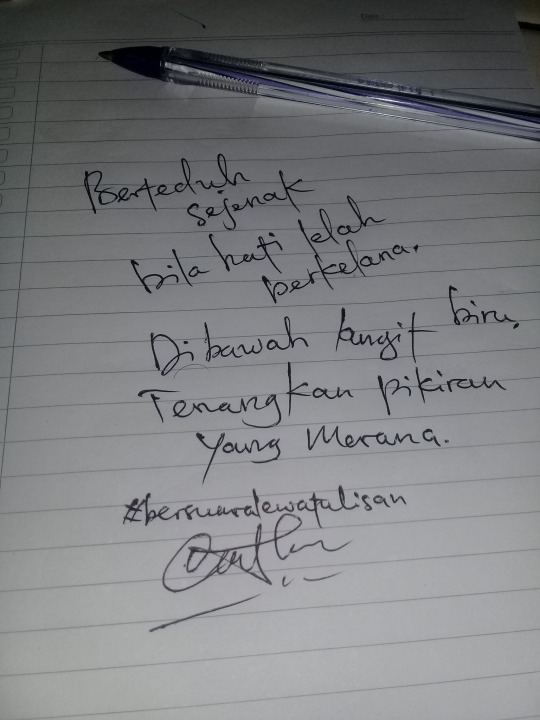 Berteduh
sejenak
bila hati lelah
berkelana.
Dibawah langit biru,
Tenangkan pikiran
yang merana.
#bersuaralewatulisan